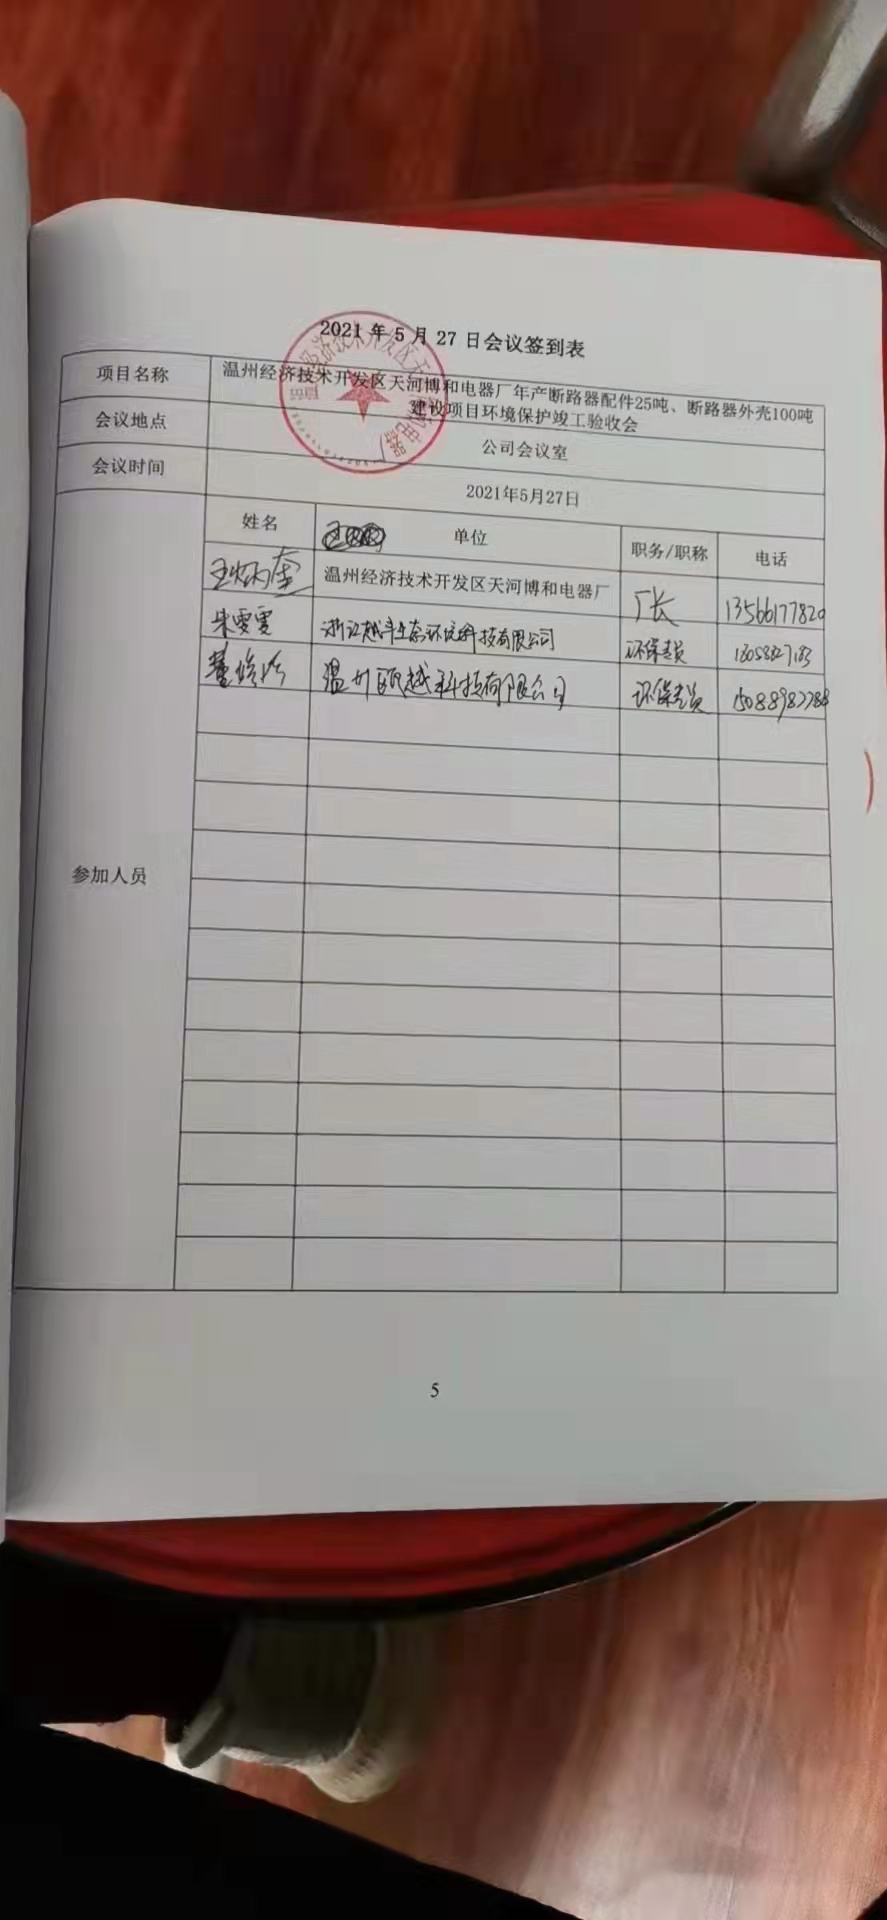 2021年5月27日会议签到表
项目名称 温州经济技术开发区天河博和电器厂年产断路器配件25吨、断路器外壳100吨
建设项目环境保护竣工验收会
会议地点 公司会议室
会议时间 2021年5月27日
姓名 单位 职务/职称 电话
王炳奎 温州经济技术开发区天河博和电器厂 厂长 13566177820
朱雯雯 环保专员
温州瓯越科技有限公司 环保专员
参加人员
5